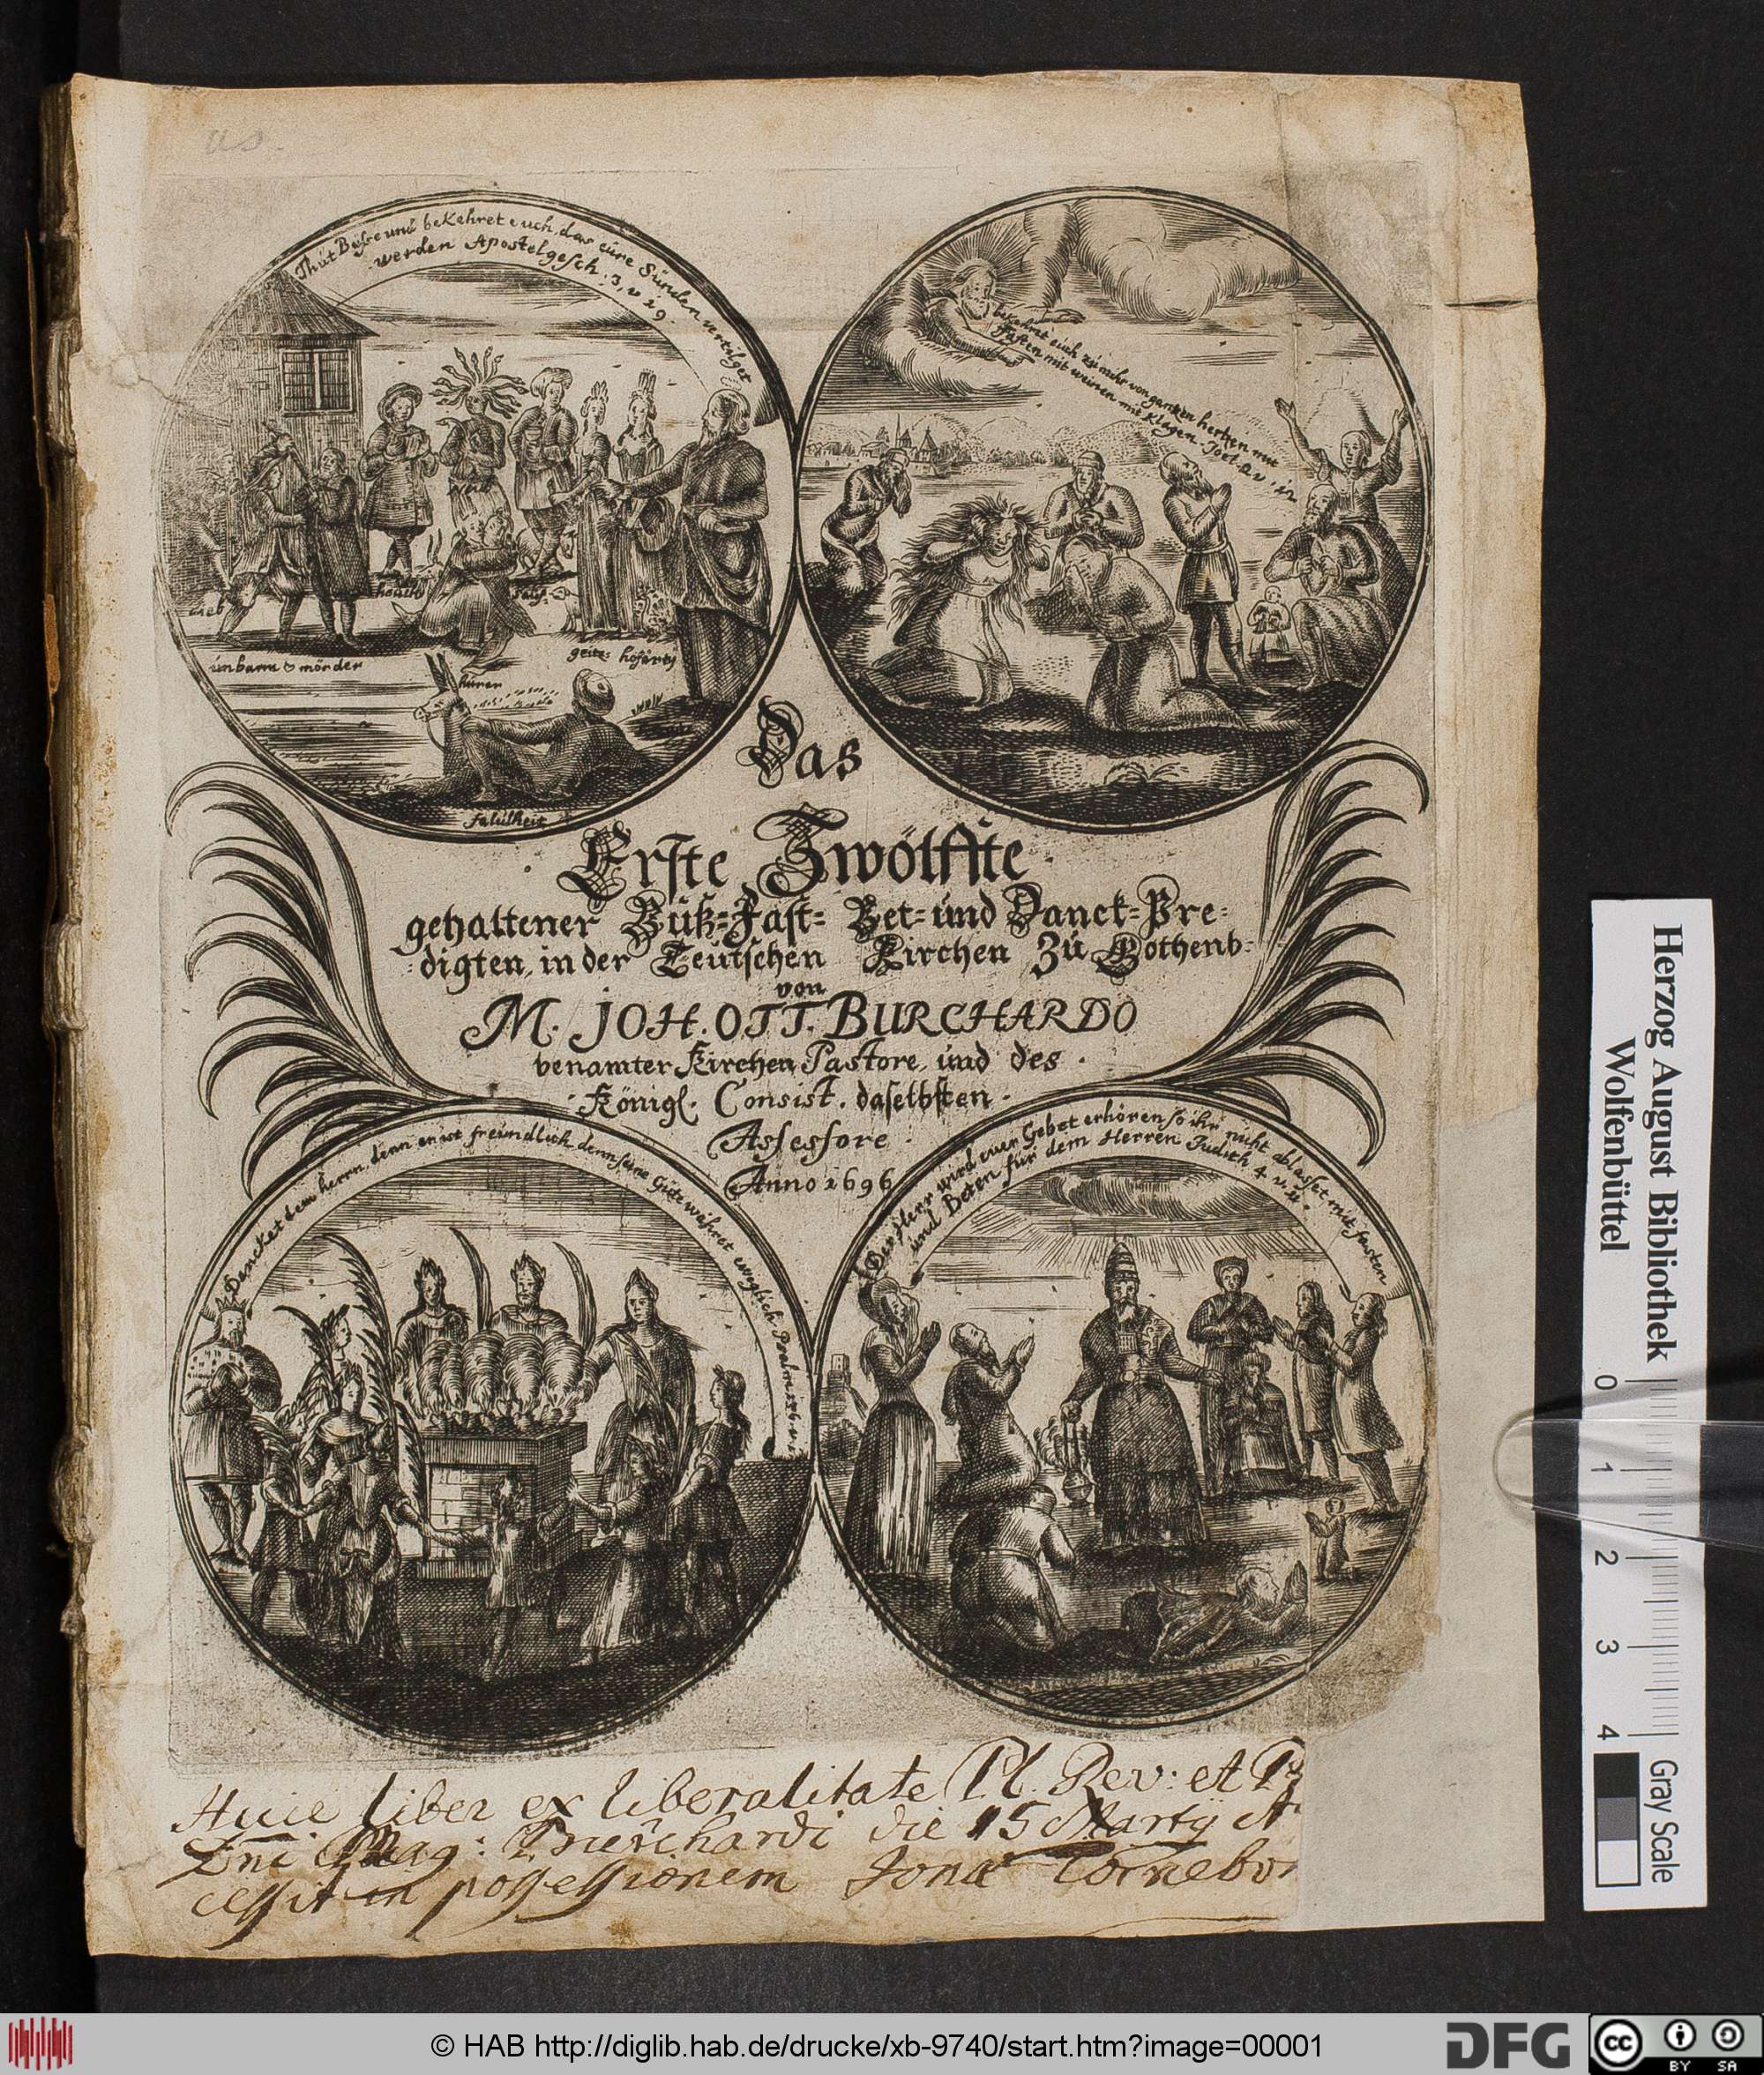 Thut Busse und bekehret euch, das eure Sünden vertilget
werden Apostelgesch. 3, v 19.
dieb
unbarm
mörder
geitz: hofărtÿ
huren
falsłheit
bekehret euch zu mihr von gantzen hertzen mit
fasten mit weinen mit Klagen. Joel. 2 v. 12
Das
Erste Zwölffte
gehaltener Buß-Fast- Bet- und Danck-Pre-
digten, in der Teutschen Kirchen Zu Gothenb-
von
M. JOH. OTT. BURCHARDO
benamter Kirchen Pastore, und des
Königl. Consist. daselbsten
Assessore
Anno 1696
Dancket dem herrn, denn er ist freundlich denn seine Güte währet ewiglich Psalm 136. v. 1
Der Herr wird euer Gebet erhören so ihr nicht ablasset mit fasten
und Beten für dem Herren Judith 4 v. 11.
Huic liber ex liberalitate Pl. Rev: et
Dni Mag: Burchardi die 15 Martÿ
cessit in possessionem Jonæ
Herzog August Bibliothek
Wolfenbüttel
0 1 2 3 4
Gray Scale
© HAB http://diglib.hab.de/drucke/xb-9740/start.htm?image=00001
DFG
cc BY SA